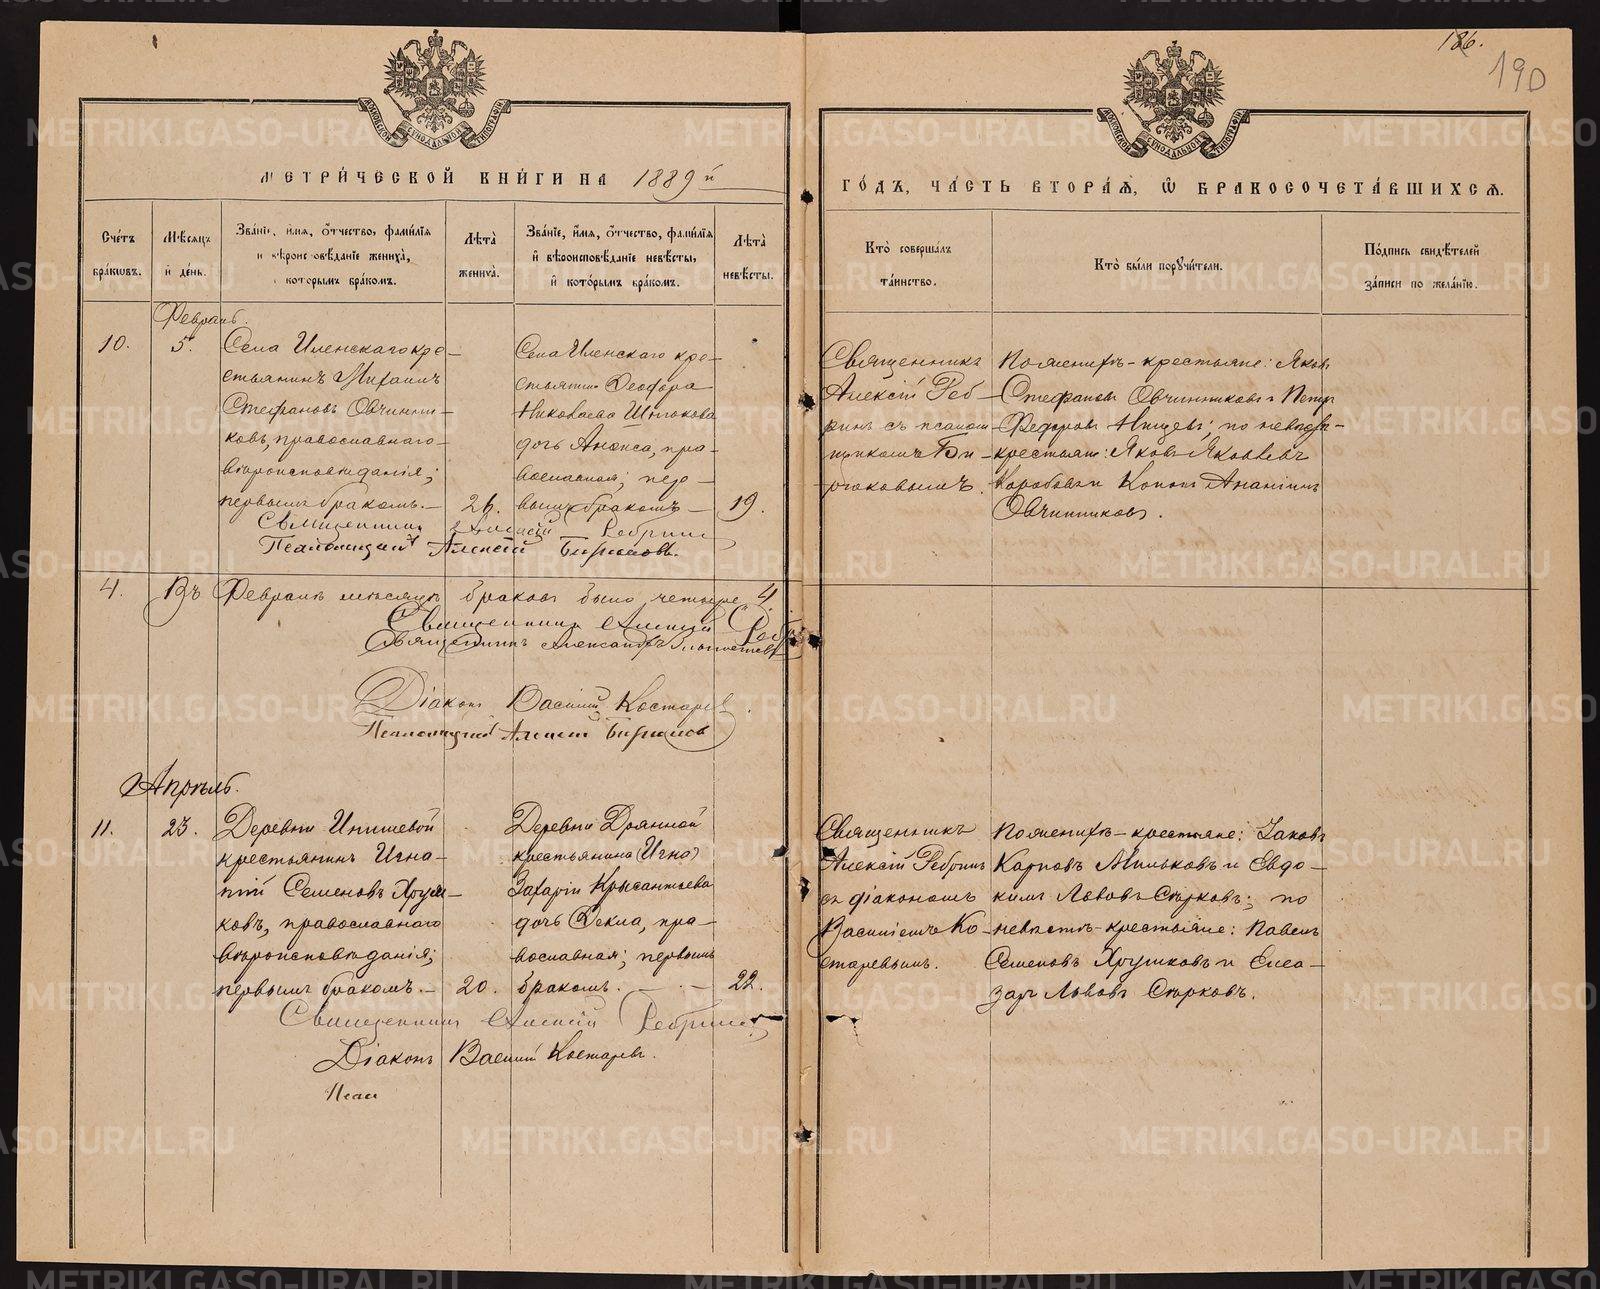 186.
190
МЕТРИ́ЧЕСКОЙ КНИ́ГИ НА 1889 й
ГО́ДЪ, ЧА́СТЬ ВТОРА́Я, Ѡ БРАКОСОЧЕТА́ВШИХСЯ.
Сче́тъ бра́кωвъ.
Мѣ́сяцъ и҆ де́нь.
Зва́нїе, и҆́мя, ѻ҆́тчество, фами́лїя и вѣроисповѣ́данїе жениха̀, которымъ бра́комъ.
Лѣ́та̀ жениха̀.
Зва́нїе, и҆́мя, ѻ҆́тчество, фами́лїя и҆ вѣроисповѣ́данїе невѣ́сты, и҆ кото́рымъ бра́комъ.
Лѣ́та̀ невѣ́сты.
Кто̀ соверша́лъ та́инство.
Кто̀ бы́ли порꙋчи́тели.
По́дпись свидѣ́телей за́писи по жела́нїю.
Февраль.
10.
5.
Села Иленскаго кре-
стьянинъ Михаилъ
Стефановъ Овчинни-
ковъ, православнаго
вѣроисповѣданія;
первымъ бракомъ.
26.
Села Иленскаго кре-
Ѳеодора
Николаева
дочь Анѳиса, пра-
вославная; пер-
вымъ бракомъ
19.
Священникъ
Алексій Реб-
ринъ съ псалом-
щикомъ Би-
рюковымъ.
По женихѣ - крестьяне: Яковъ
Стефановъ Овчинниковъ и Петръ
Федоровъ по невѣстѣ -
крестьяне: Яковъ Яковлевъ
Кононъ Ананьинъ
Овчинниковъ.
Священникъ Алексій Ребринъ
Псаломщикъ Алексій Бирюковъ.
4. Въ Февралѣ мѣсяцѣ браковъ было четыре 4.
Священникъ Алексій Ребринъ
Священникъ Александръ
Діаконъ Василій Костаревъ.
Псаломщикъ Алексій Бирюковъ
Апрѣль.
11.
23.
Деревни Ипишевой
крестьянинъ Игна-
тій Семеновъ Хруш-
ковъ, православнаго
вѣроисповѣданія;
первымъ бракомъ.
20.
Деревни Дрянной
крестьянина (Игна)
Захарія Крысантьева
дочь Ѳекла, пра-
вославная; первымъ
бракомъ.
22.
Священникъ
Алексій Ребринъ
съ діакономъ
Василіемъ Ко-
старевымъ.
По женихѣ - крестьяне: Іаковъ
Карповъ Миньковъ и Евдо-
кимъ Львовъ Сюрковъ; по
невѣстѣ - крестьяне: Павелъ
Семеновъ Хрушковъ и Елеа-
заръ Львовъ Сюрковъ.
Священникъ Алексій Ребринъ
Діаконъ Василій Костаревъ.
Псал
METRIKI.GASO-URAL.RU